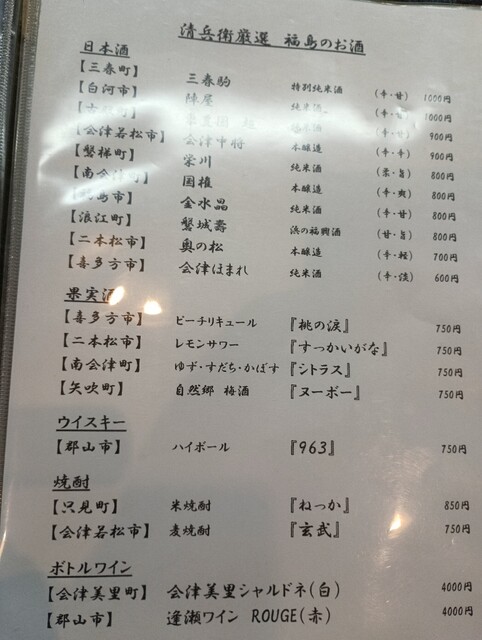 清兵衛厳選 福島のお酒
日本酒
【三春町】 三春駒 特別純米酒 (辛・甘) 1000円
【白河市】 陣屋 純米酒 (辛・甘) 1000円
900円
【会津若松市】 会津中将 本醸造 (辛・辛) 900円
【磐梯町】 栄川 純米酒 (柔・旨) 800円
【南会津町】 国権 本醸造 (辛・爽) 800円
島市】 金水晶 純米酒 (辛・甘) 800円
【浪江町】 磐城壽 浜の福興酒 (甘・旨) 800円
【二本松市】 奥の松 本醸造 (辛・軽) 700円
【喜多方市】 会津ほまれ 純米酒 (辛・淡) 600円
果実酒
【喜多方市】 ピーチリキュール 『桃の涙』 750円
【二本松市】 レモンサワー 『すっかいがな』 750円
【南会津町】 ゆず・すだち・かぼす 『シトラス』 750円
【矢吹町】 自然郷 梅酒 『ヌーボー』 750円
ウイスキー
【郡山市】 ハイボール 『963』 750円
焼酎
【只見町】 米焼酎 『ねっか』 850円
【会津若松市】 麦焼酎 『玄武』 750円
ボトルワイン
【会津美里町】 会津美里シャルドネ(白) 4000円
【郡山市】 逢瀬ワイン ROUGE(赤) 4000円